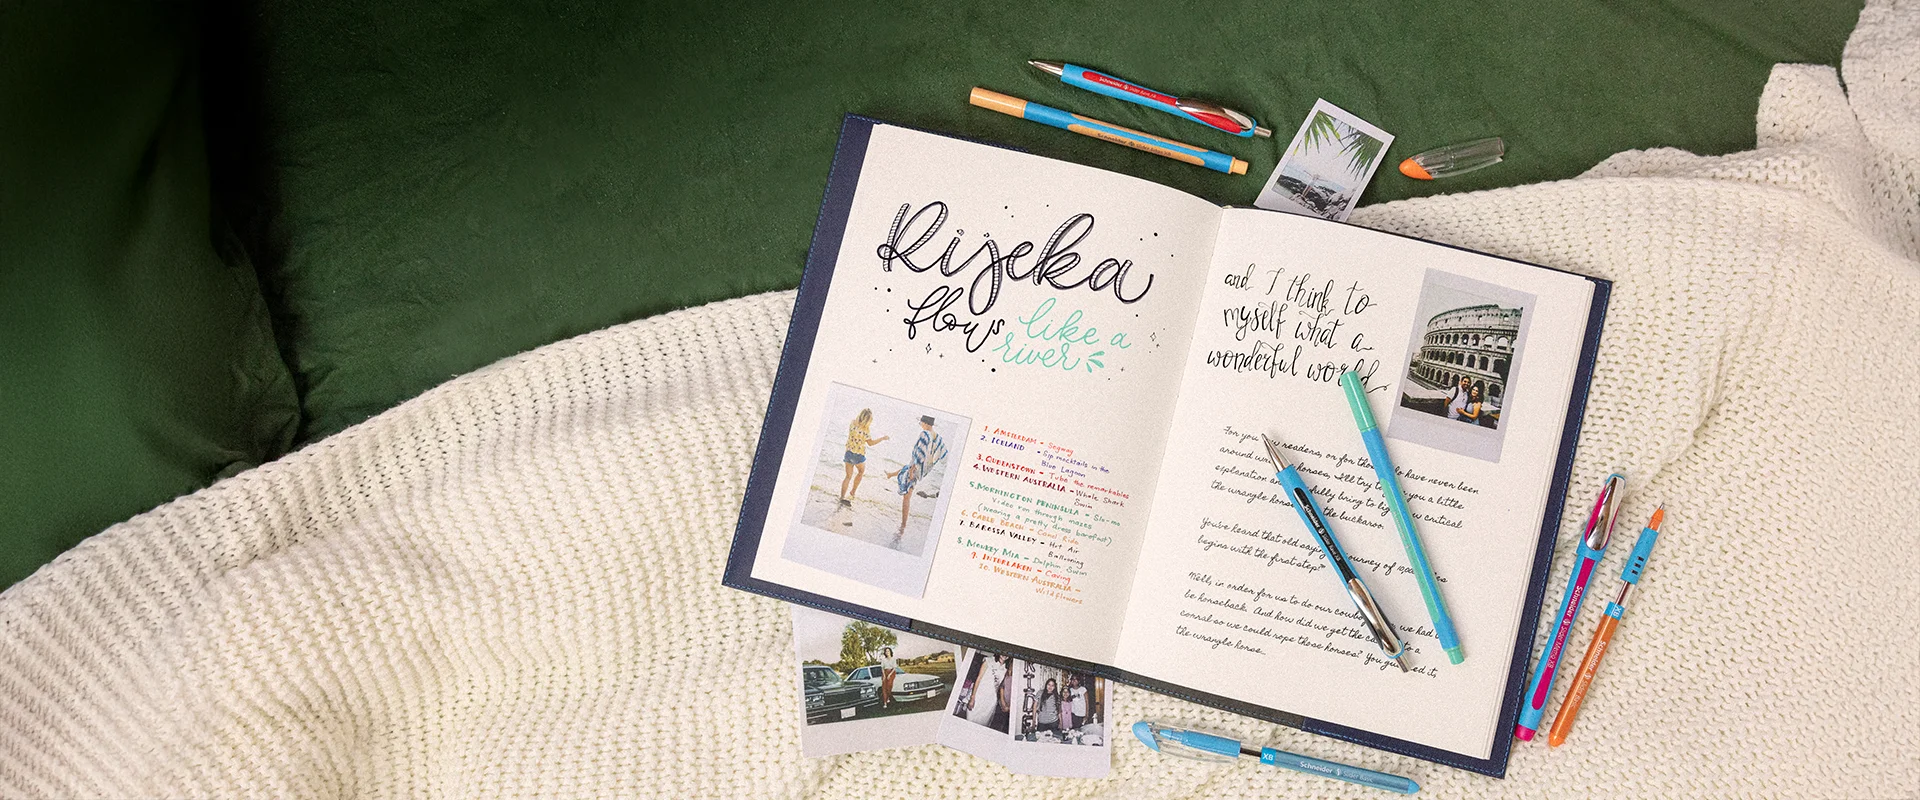 Rijeka
flows like a
river
1. AMSTERDAM - Segway
2. ICELAND - Sip mocktails in the
Blue Lagoon
3. QUEENSTOWN - Tube the remarkables
4. WESTERN AUSTRALIA - Whale Shark
Swim
5. MORNINGTON PENINSULA - Slo-mo
Video run through mazes
(Wearing a pretty dress barefoot)
6. CABLE BEACH - Camel Ride
7. BAROSSA VALLEY - Hot Air
Ballooning
8. MONKEY MIA - Dolphin Swim
9. INTERLAKEN - Caving
10. WESTERN AUSTRALIA -
Wildflowers
and I think to
myself what a
wonderful world
For you readers, or for have never been
around horses, I'll try to you a little
explanation and fully bring to critical
the wrangle the buckaroo.
You've heard that old saying journey of
begins with the first step?"
Well, in order for us to do our we had
be horseback. And how did we get the to a
corral so we could rope those horses? You it,
the wrangle horse...
Schneider Slider Rave XB
Schneider Slider Edge XB
Schneider
Schneider Slider Memo XB
Schneider Slider Basic
XB
XB
Schneider Slider Basic